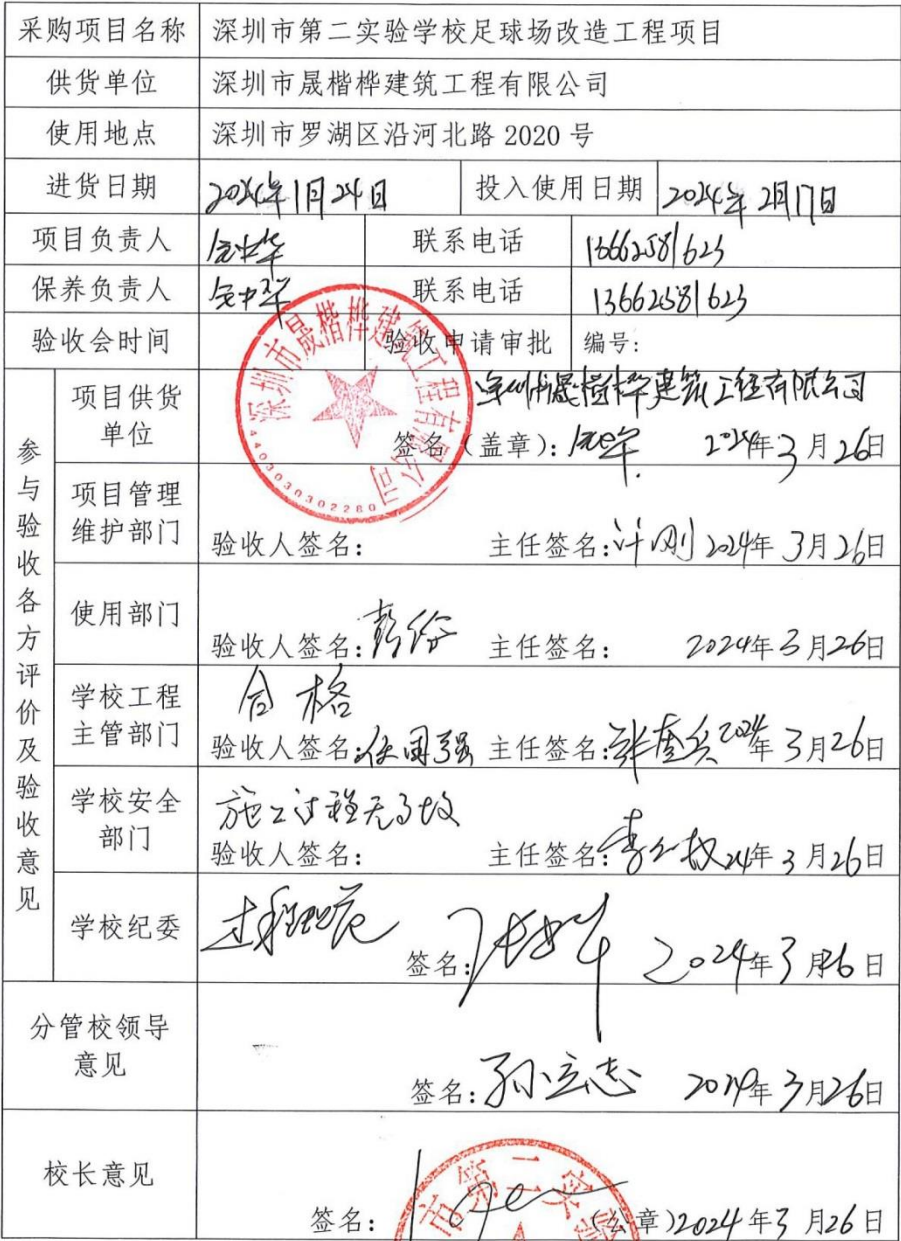 采购项目名称 深圳市第二实验学校足球场改造工程项目
供货单位 深圳市晟楷桦建筑工程有限公司
使用地点 深圳市罗湖区沿河北路 2020 号
进货日期 2024年1月24日 投入使用日期 2024年2月17日
项目负责人 联系电话 13662581623
保养负责人 联系电话 13662581623
验收会时间 验收申请审批 编号:
参与验收各方评价及验收意见
项目供货单位 深圳市晟楷桦建筑工程有限公司
签名(盖章): 2024年3月26日
深圳市晟楷桦建筑工程有限公司
4403030302280
项目管理维护部门
验收人签名: 主任签名:许刚 2024年3月26日
使用部门
验收人签名: 主任签名: 2024年3月26日
学校工程主管部门 合格
验收人签名:伍国强 主任签名: 2024年3月26日
学校安全部门 施工过程无事故
验收人签名: 主任签名: 24年3月26日
学校纪委 过程规范
签名: 2024年3月26日
分管校领导意见
签名:孙立志 2024年3月26日
校长意见
签名: (公章)2024年3月26日
市第二实验